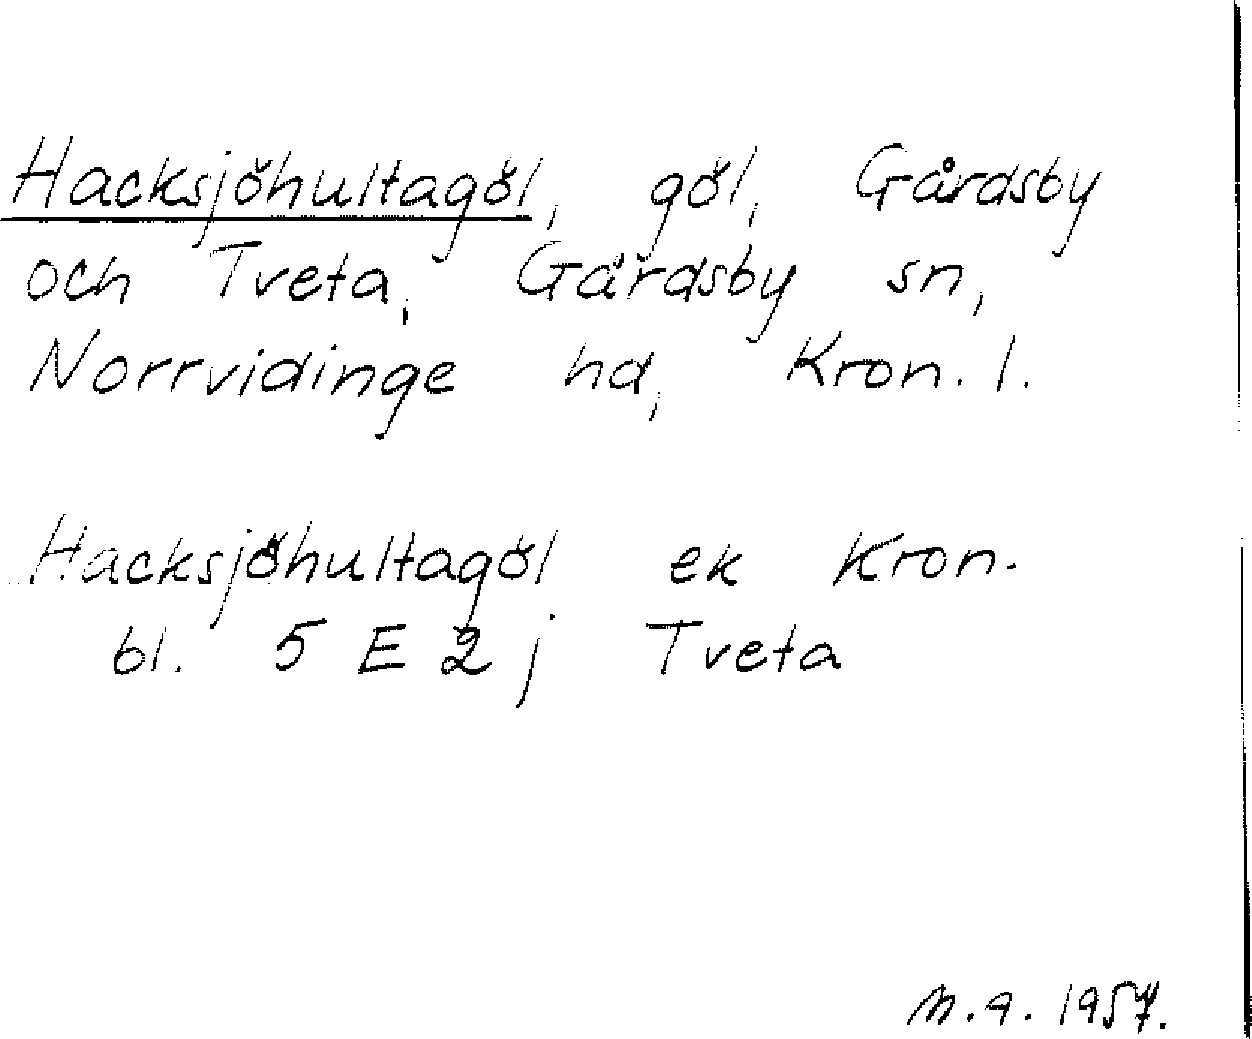 Hacksjöhultagöl, göl, Gårdsby
och Tveta, Gårdsby sn,
Norrvidinge hd, Kron. l.
Hacksjöhultagöl ek Kron.
bl. 5 E 2 j Tveta
1957.